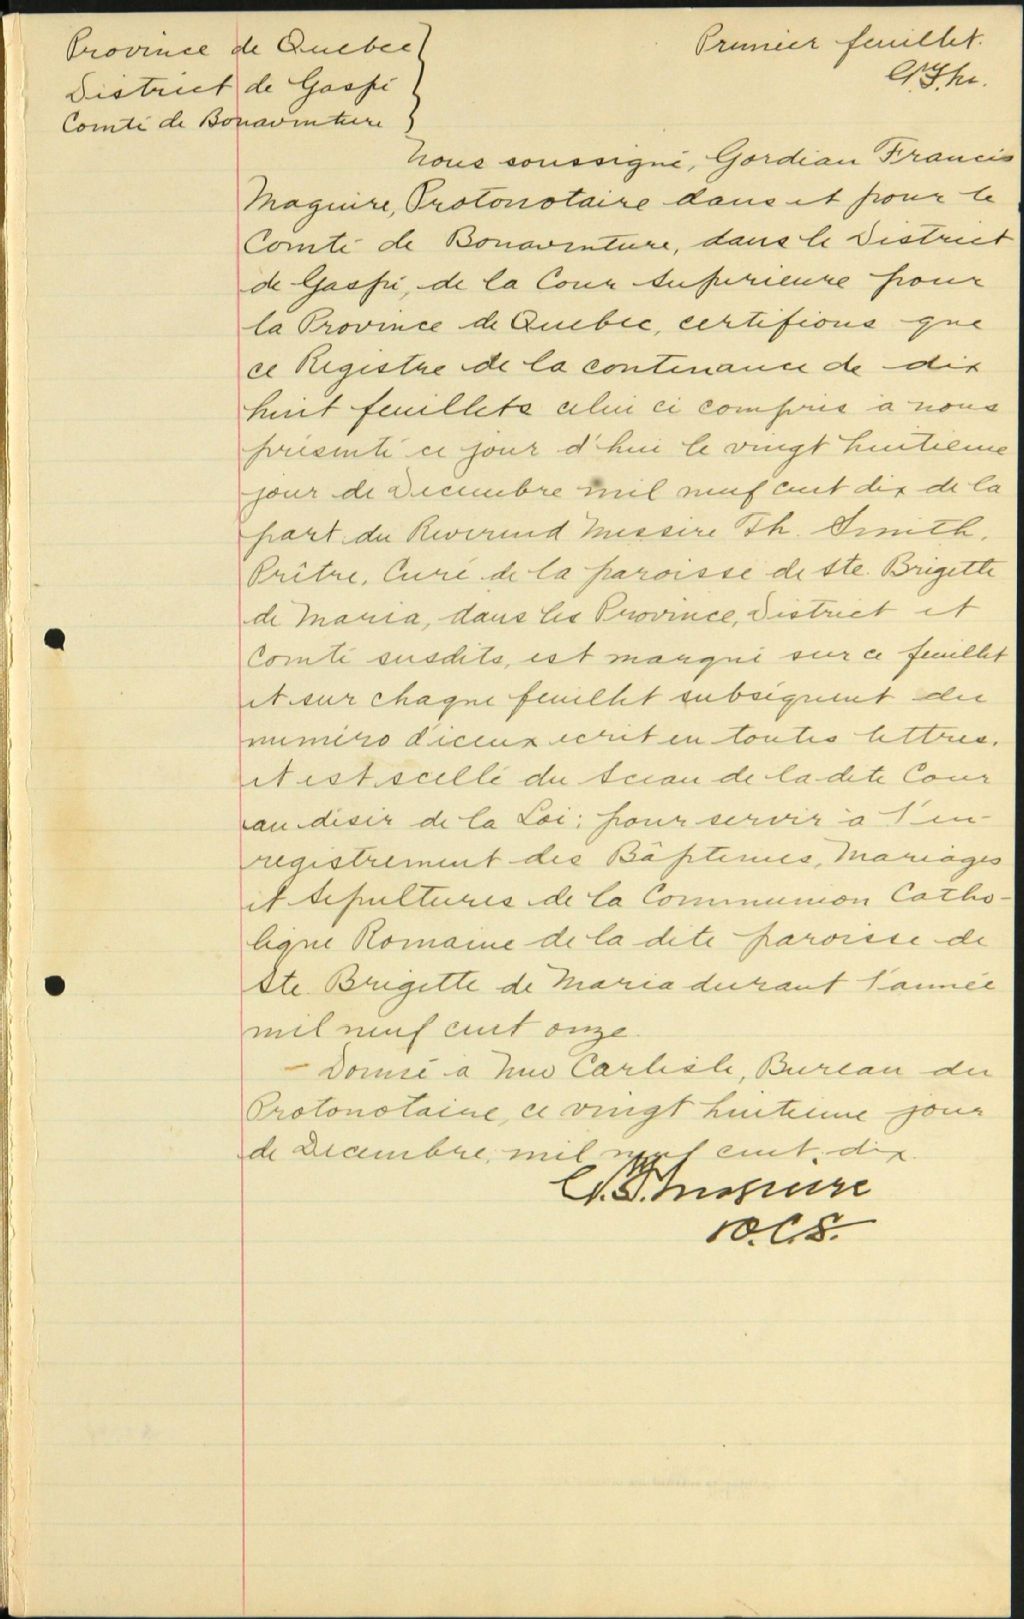 Province de Quebec
District de Gaspé
Comté de Bonaventure
Premier feuillet.
G.F.M.
Nous soussigné, Gordian Francis
Maguire, Protonotaire dans et pour le
Comté de Bonaventure, dans le District
de Gaspé, de la Cour Superieure pour
la Province de Quebec, certifions que
ce Registre de la contenance de dix
huit feuillets celui ci compris à nous
présenté ce jour d'hui le vingt huitieme
jour de Decembre mil neuf cent dix de la
part du Reverend Messire Th. Smith,
Prêtre, Curé de la paroisse de Ste. Brigette
de Maria, dans les Province, District et
Comté susdits, est marqué sur ce feuillet
et sur chaque feuillet subséquent du
numéro d'iceux ecrit en toutes lettres,
et est scellé du Sceau de la dite Cour
au désir de la Loi; pour servir à l'en-
registrement des Bâptemes, Mariages
et Sepultures de la Communion Catho-
lique Romaine de la dite paroisse de
Ste. Brigette de Maria durant l'année
mil neuf cent onze.
– Donné à New Carlisle, Bureau du
Protonotaire, ce vingt huitieme jour
de Decembre, mil neuf cent dix.
G.F. Maguire
P.C.S.